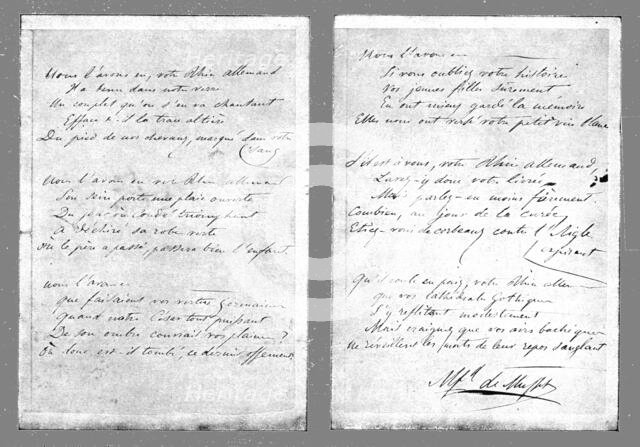 Nous l'avons eu, votre Rhin allemand
Il a tenu dans notre verre
Un couplet qu'on s'en va chantant
Efface-t-il la trace altière
Du pied de nos chevaux, marqué dans votre
sang
Nous l'avons eu votre Rhin allemand
Son sein porte une plaie ouverte
Du jour où Condé triomphant
A déchiré sa robe verte
Où le père a passé, passera bien l'enfant.
Nous l'avons
que faisaient vos vertus germaines
Quand notre César tout puissant
De son ombre couvrait vos plaines ?
Où donc est-il tombé, ce dernier ossement
Nous l'avons eu
Si vous oubliez votre histoire
Vos jeunes filles sûrement
En ont mieux gardé la mémoire
Elles nous ont versé votre petit vin blanc
S'il est à vous, votre Rhin allemand,
Lavez-y donc votre livrée
Mais parlez-en moins fièrement
Combien, au jour de la curée
Etiez-vous de corbeaux contre l'Aigle
expirant
Qu'il coule en paix, votre Rhin allem
que vos cathédrales gothiques
S'y reflètent modestement
Mais craignez que vos airs bachiques
Ne réveillent les morts de leur repos sanglant
Alf.d de Musset